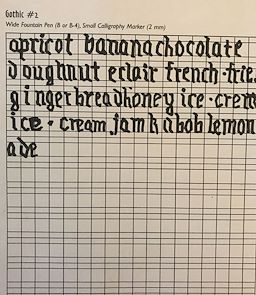 Gothic #2
Wide Fountain Pen (B or B-4), Small Calligraphy Marker (2 mm)
apricot bananachocolate
doughnut eclair french-frie.
gingerbreadhoney ice-crem
ice - cream jam kabob lemon
ade